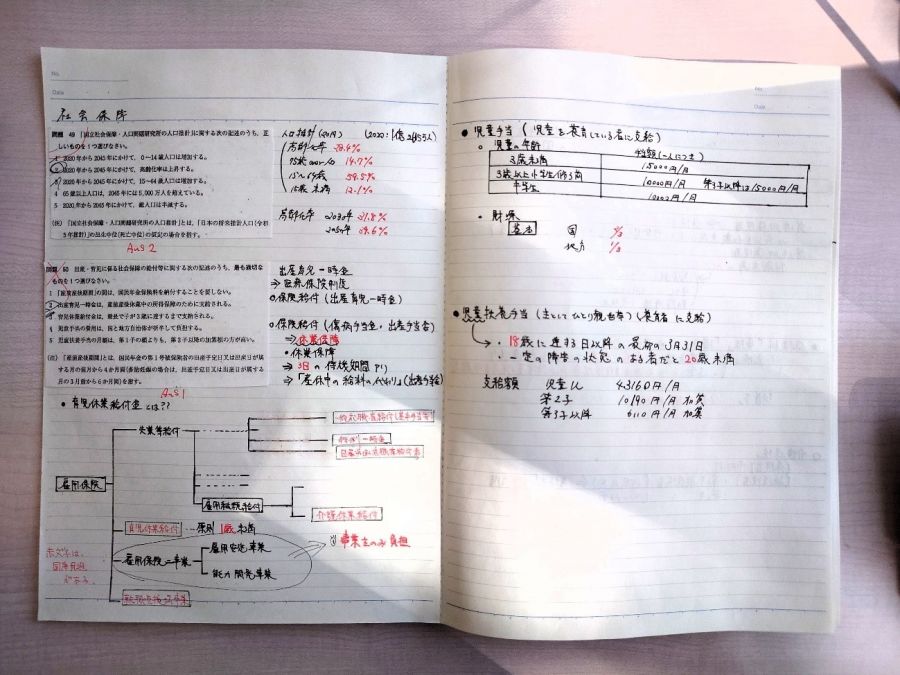 No.
Date
社会保障
問題 49 「国立社会保障・人口問題研究所の人口推計」に関する次の記述のうち、正
しいものを1つ選びなさい。
1 2020年から2045年にかけて、0〜14歳人口は増加する。
2 2020年から2045年にかけて、高齢化率は上昇する。
3 2020年から2045年にかけて、15〜64歳人口は増加する。
4 65歳以上人口は、2045年には5,000万人を超えている。
5 2020年から2045年にかけて、総人口は半減する。
(注) 「国立社会保障・人口問題研究所の人口推計」とは、「日本の将来推計人口(令和
5年推計)」の出生中位(死亡中位)の仮定の場合を指す。
Ans 2
人口推計
高齢化率 28.6%
15〜64歳 59.5%
15歳未満 12.1%
高齢化率
問題 50 出産・育児に係る社会保障の給付等に関する次の記述のうち、最も適切な
ものを1つ選びなさい。
1 「産前産後期間」の間は、国民年金保険料を納付することを要しない。
2 出産育児一時金は、産前産後休業中の所得保障のために支給される。
3 育児休業給付金は、最長で子が3歳に達するまで支給される。
4 児童手当の費用は、国と地方自治体が折半して負担する。
5 児童扶養手当の月額は、第1子の額よりも、第2子以降の加算額の方が高い。
(注) 「産前産後期間」とは、国民年金の第1号被保険者の出産予定日又は出産日が属
する月の前月から4か月間(多胎妊娠の場合は、出産予定日又は出産日が属する
月の3月前から6か月間)を指す。
Ans 1
出産育児一時金
⇒ 医療保険制度
保険給付(出産育児一時金)
保険給付(傷病手当金・出産手当金)
⇒ 休業保障
・休業保障
⇒ 3日の待機期間アリ
⇒「産休中の給料の代わり」(出産手当金)
・育児休業給付金とは??
失業等給付
雇用保険
雇用継続給付
介護休業給付
育児休業給付 原則 1歳未満
雇用保険二事業
雇用安定事業
能力開発事業
事業主のみ負担
赤文字は、
国庫負担
がある。
No.
Date
● 児童手当(児童を養育している者に支給)
○ 児童の年齢 手当額(一人につき)
3歳未満 15000円/月
3歳以上小学生修了前 10000円/月 第3子以降は15000円/月
中学生 10000円/月
・財源
国 2/3
地方 1/3
● 児童扶養手当(主としてひとり親世帯)(養育者に支給)
・18歳に達する日以降の最初の3月31日
・一定の障害の状態のある者だと20歳未満
支給額 児童1人 43160円/月
第2子 10190円/月 加算
第3子以降 6110円/月 加算